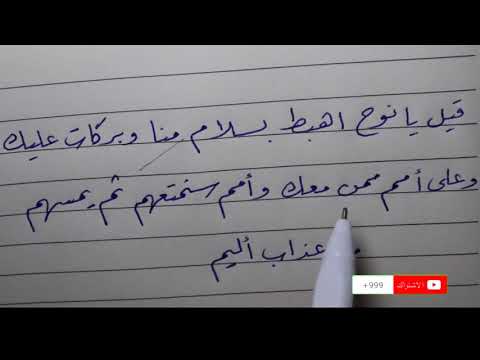 قيل يا نوح اهبط بسلام منا وبركات عليك
وعلى أمم ممن معك وأمم سنمتعهم ثم يمسهم
عذاب أليم
+999 الاشتراك